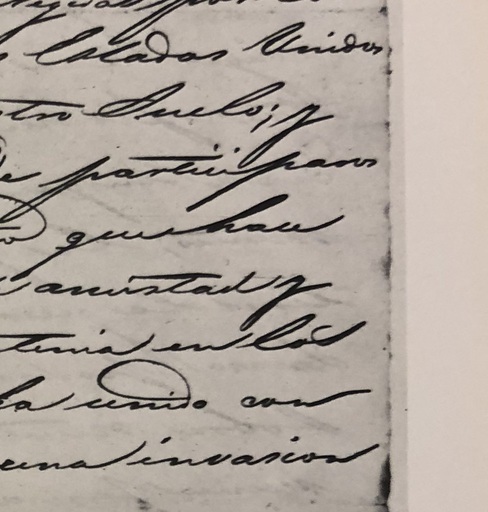 s Estados Unidos
stro Suelo; y
de participaros
que hace
amistad y
tenia en los
ha unido con
una invasion